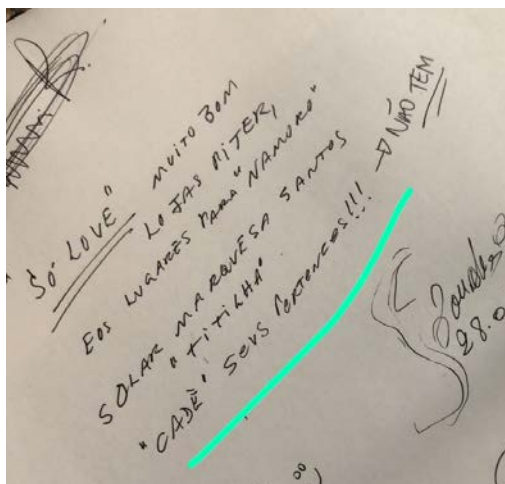 "SÓ LOVE" MUITO BOM
LOJAS PITER,
EOS LUGARES PARA "NAMORO"
SOLAR MARQUESA SANTOS
"TITILHA"
"CADÊ" SEUS PERTENCES!!! → NÃO TEM
28.0
00